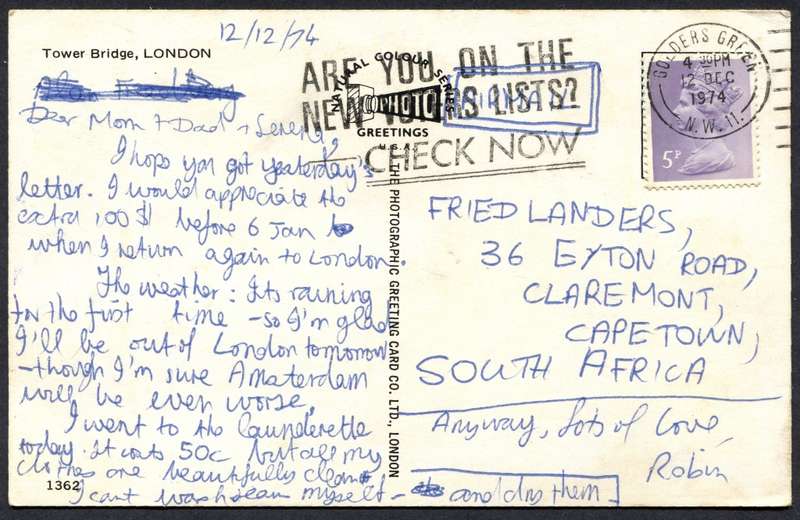 12/12/74
Tower Bridge, LONDON
ARE YOU ON THE
NEW VOTERS LISTS?
CHECK NOW
NATURAL COLOUR SERIES
PHOTO
GREETINGS
U.S.A.
GOLDERS GREEN
4 30PM
12 DEC
1974
N.W.11.
5P
Dear Mom + Dad +
I hope you got yesterday's
letter. I would appreciate the
extra 100$ before 6 Jan
when I return again to London.
The weather: Its raining
for the first time - so I'm glad
I'll be out of London tomorrow
- though I'm sure Amsterdam
will be even worse.
I went to the launderette
today. It costs 50c but all my
clothes are beautifully clean.
I cant wash them myself -
and dry them
1362
THE PHOTOGRAPHIC GREETING CARD CO. LTD., LONDON
FRIEDLANDERS,
36 EYTON ROAD,
CLAREMONT,
CAPETOWN,
SOUTH AFRICA
Anyway, lots of love,
Robin